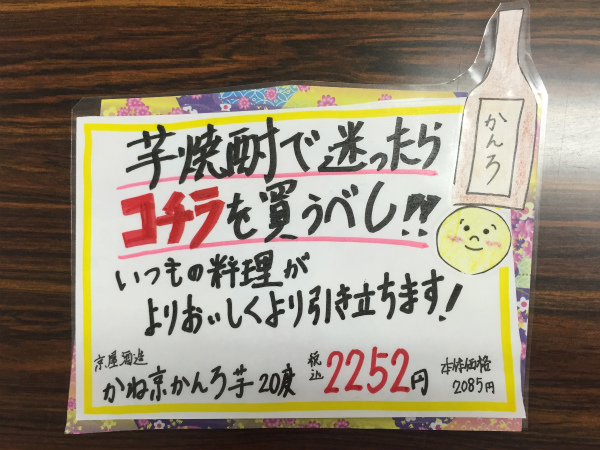 芋焼酎で迷ったら
コチラを買うべし!!
いつもの料理が
よりおいしくより引き立ちます!
京屋酒造
かね京かんろ芋20度
税込2252円
本体価格
2085円
かんろ